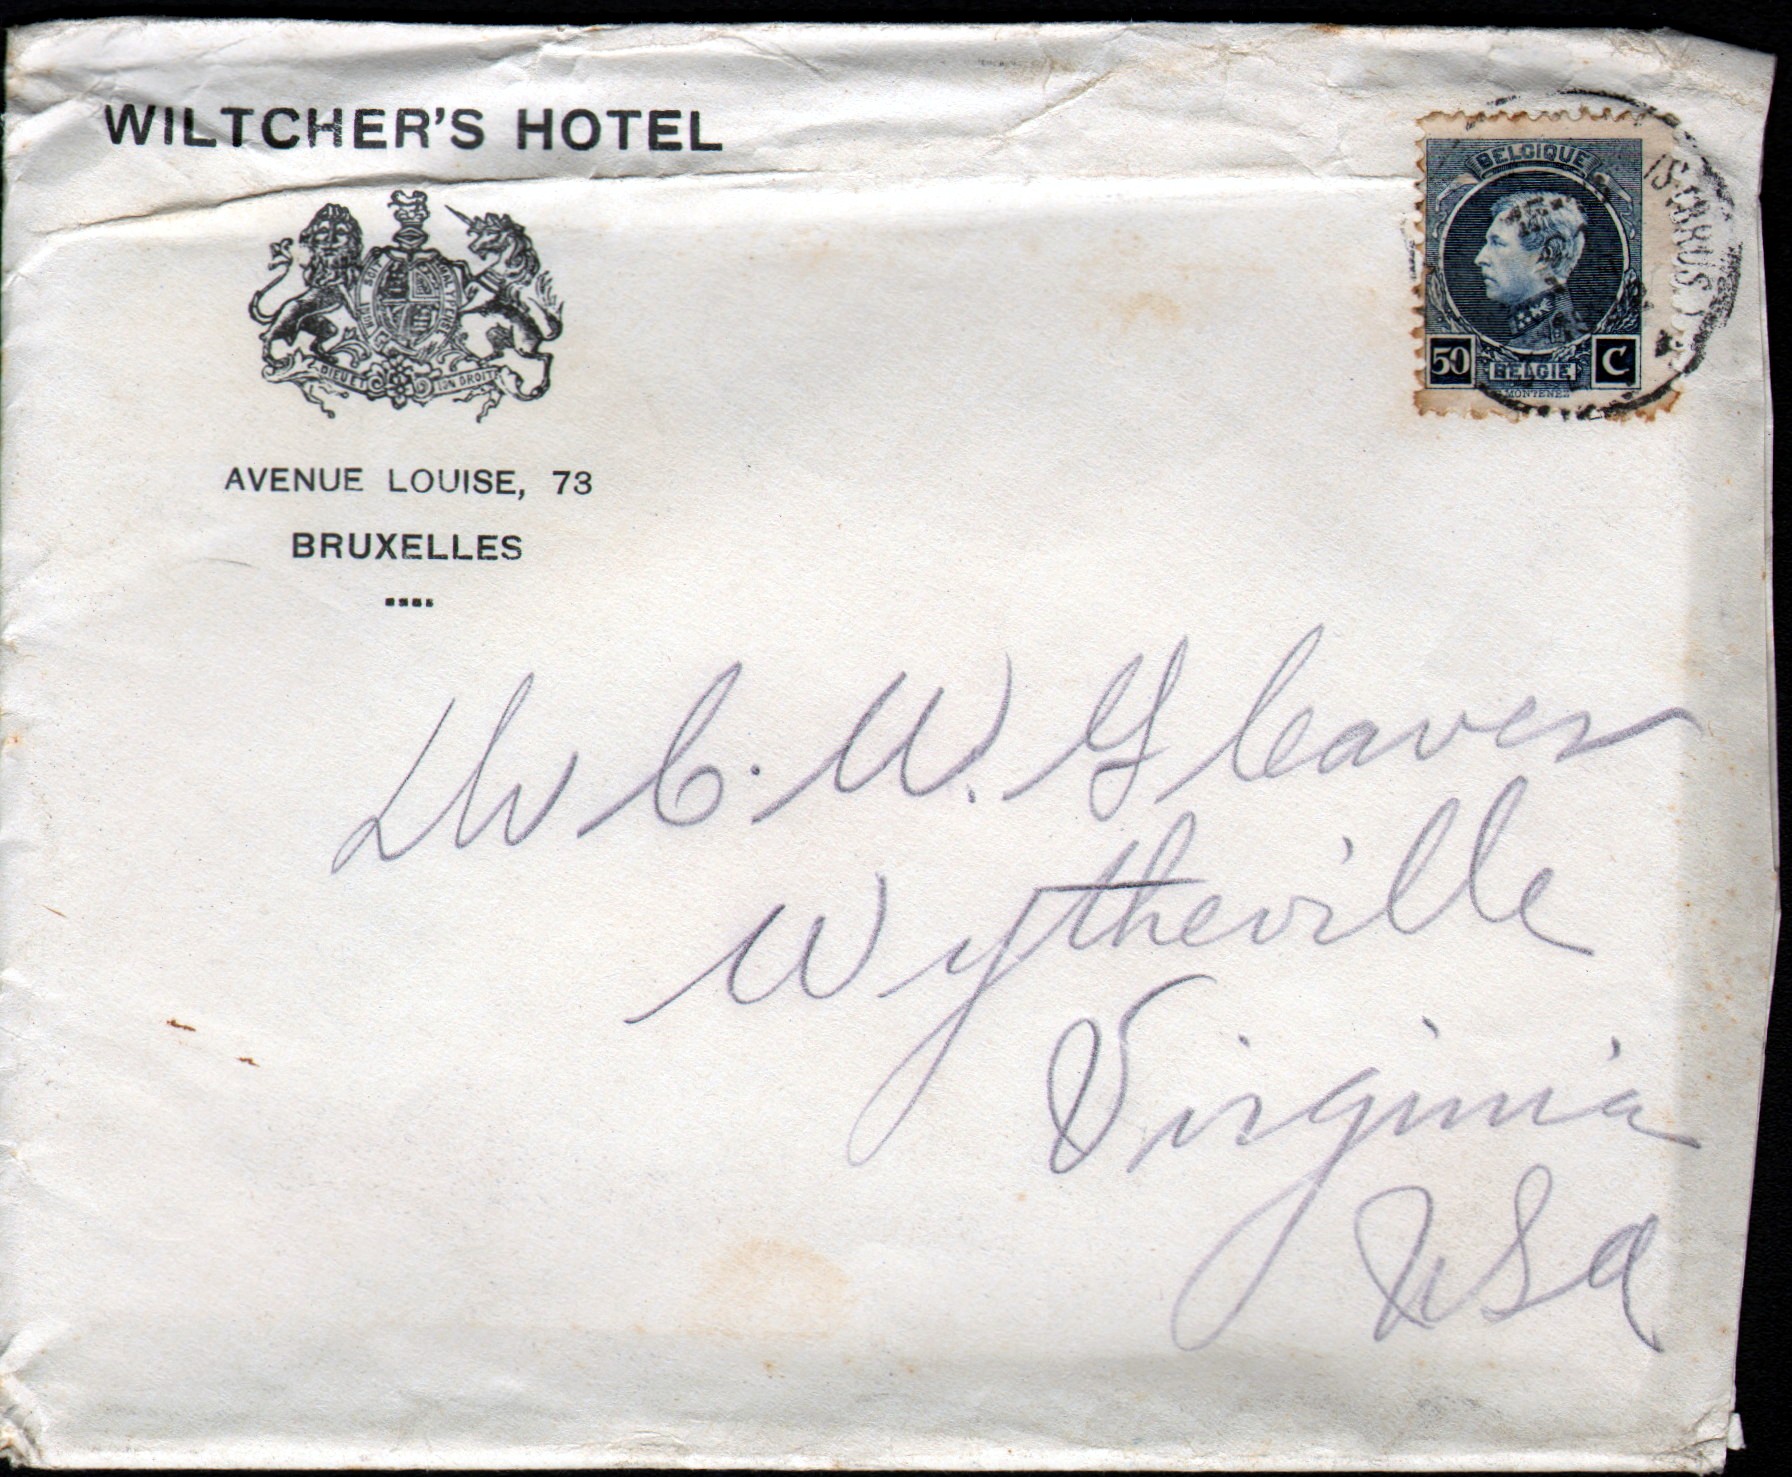 WILTCHER'S HOTEL
BELGIQUE
50 BELGIE C
MONTENEZ
DIEU ET MON DROIT
AVENUE LOUISE, 73
BRUXELLES
Dr C. W. Gleaves
Wytheville
Virginia
USA